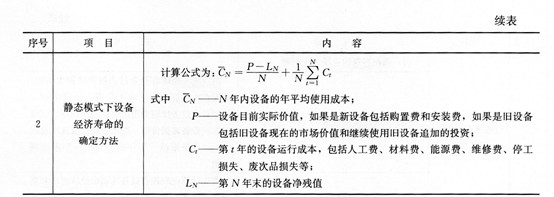 续表
序号 项 目 内 容
2
静态模式下设备
经济寿命的
确定方法
计算公式为：C̄_N = (P−L_N)/N + (1/N)∑_{t=1}^{N} C_t
式中 C̄_N——N 年内设备的年平均使用成本；
P——设备目前实际价值，如果是新设备包括购置费和安装费，如果是旧设备
包括旧设备现在的市场价值和继续使用旧设备追加的投资；
C_t——第 t 年的设备运行成本，包括人工费、材料费、能源费、维修费、停工
损失、废次品损失等；
L_N——第 N 年末的设备净残值